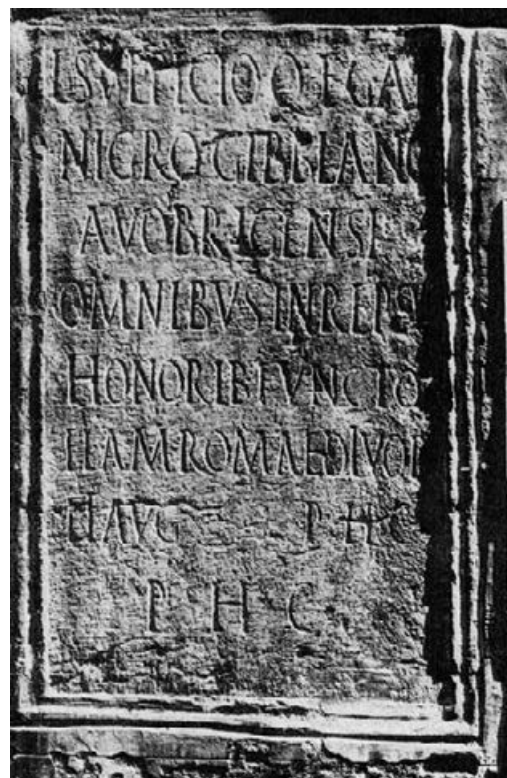 L SVLPICIO Q F GAL
NIGRO GIBBIANO
AVOBRIGENSE
OMNIBVS IN RE P SVA
HONORIB FVNCTO
FLAM ROMAE DIVOR
ET AVG P H C
P H C